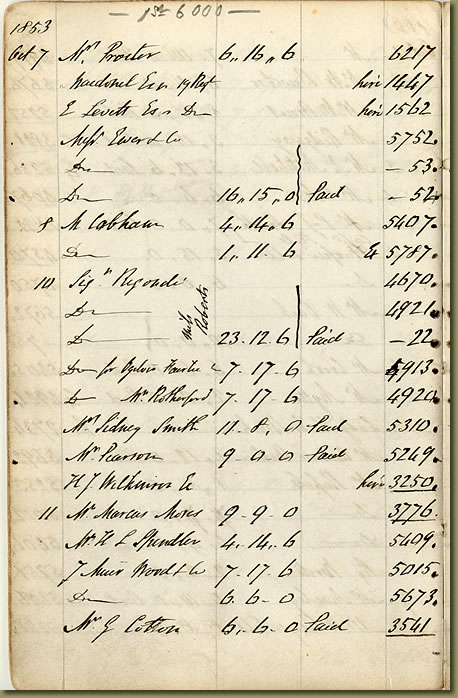 1st 6000
1853
Oct 7 Mrs Procter 6,,16,,6 6217
Macdonel Esqr 19 Regt hire 1447
E Levett Esqr Do hire 1562
Messrs Ewer & Co 5752
Do — 53
Do 16,,15,,0 Paid — 52
8 M Cobham 4,,14,,6 5407
Do 1,,11,,6 Ex 5787
10 Sigr Regondi 4670
Do 4921
Do Miss Roberts 23-12-6 Paid — 22
Do for Ogilvie 7-17-6 5913
Do Mrs Rotherford 7-17-6 4920
Mrs Sidney Smith 11-8,0 Paid 5310
Mr Pearson 9-0-0 Paid 5249
H J Wilkinson Es hire 3250
11 Mr Marcus Moses 9-9-0 3776
Mr H L Spindler 4-14-6 5409
J Muir Wood & Co 7-17-6 5015
Do 6.6-0 5673
Mr G Cotton 6,-6-0 Paid 3541